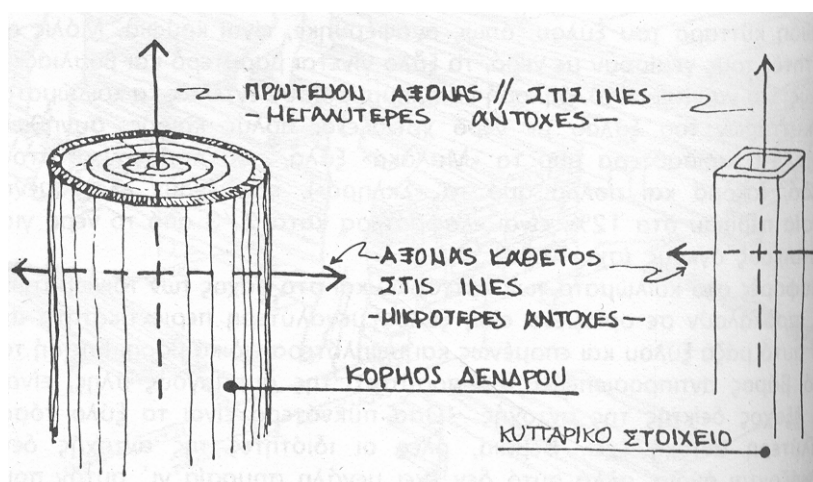 ΠΡΩΤΕΥΟΝ ΑΞΟΝΑΣ // ΣΤΙΣ ΙΝΕΣ
-ΜΕΓΑΛΥΤΕΡΕΣ ΑΝΤΟΧΕΣ-
-ΑΞΟΝΑΣ ΚΑΘΕΤΟΣ
ΣΤΙΣ ΙΝΕΣ
-ΜΙΚΡΟΤΕΡΕΣ ΑΝΤΟΧΕΣ-
ΚΟΡΜΟΣ ΔΕΝΔΡΟΥ
ΚΥΤΤΑΡΙΚΟ ΣΤΟΙΧΕΙΟ